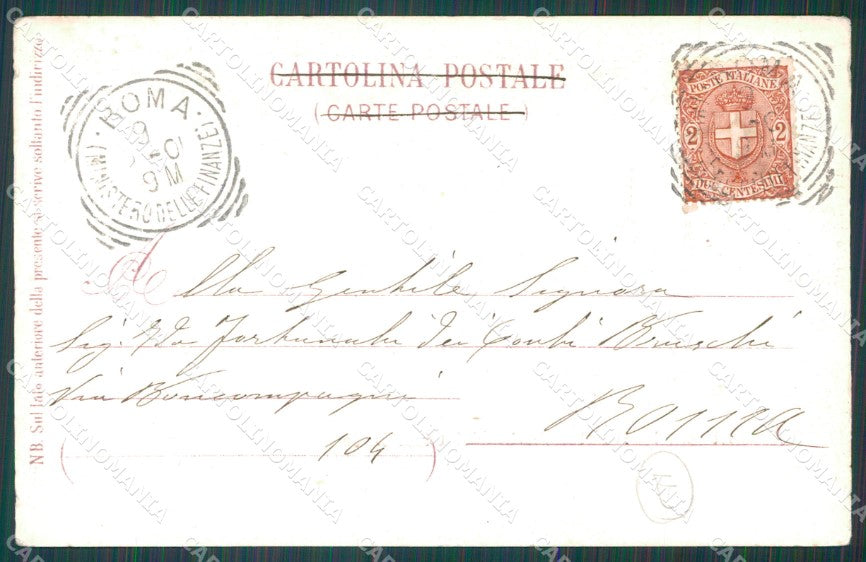 CARTOLINA POSTALE
(CARTE POSTALE)
ROMA
9 M
(MINISTERO DELLE FINANZE)
POSTE ITALIANE
2 2
DUE CENTESIMI
Alla Gentile Signora
Sig. Ida Fortunati dei Conti Bruschi
Via Boncompagni
104
Roma
NB. Sul lato anteriore della presente si scrive soltanto l'indirizzo
CARTOLINOMANIA